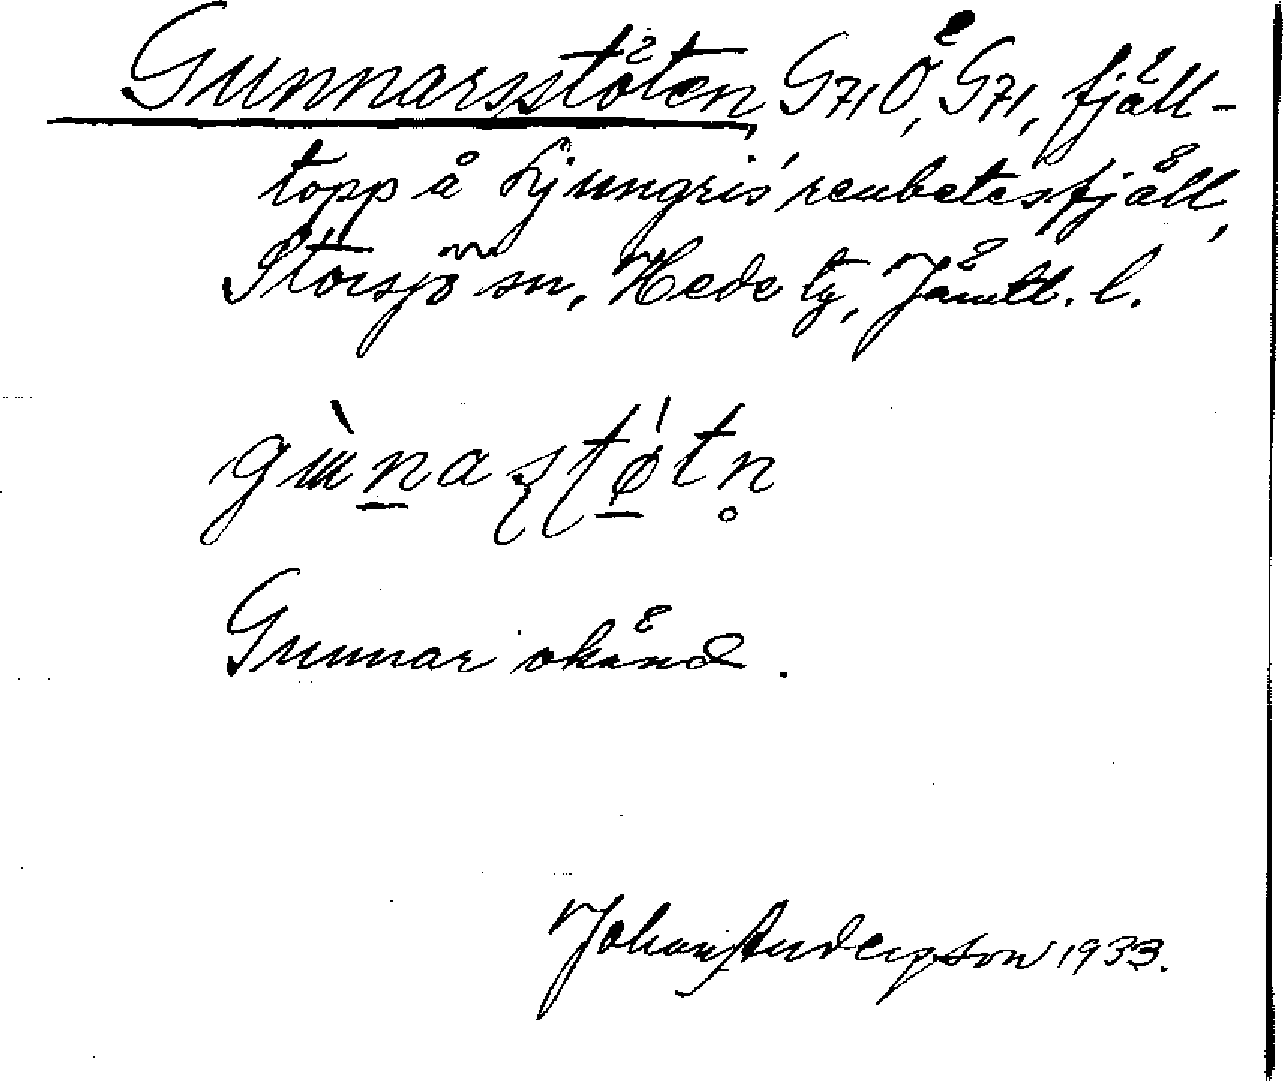 Gunnarsstöten, G71Ö, G71, fjäll-
topp å Ljungris' renbetesfjäll,
Storsjö sn, Hede tg, Jämtl. l.
gùnaʂtǿtn̥
Gunnar okänd.
Johan Anderson 1933.